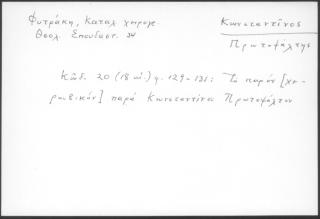 Φυτράκη, Καταλ. χειρογρ.
Θεολ. Σπουδαστ. 34
Κωνσταντῖνος
Πρωτοψάλτης
Κῶδ. 20 (18 αἰ.) φ. 129-131: Τὸ παρὸν [χε-
ρουβικὸν] παρὰ Κωνσταντίνου Πρωτοψάλτου